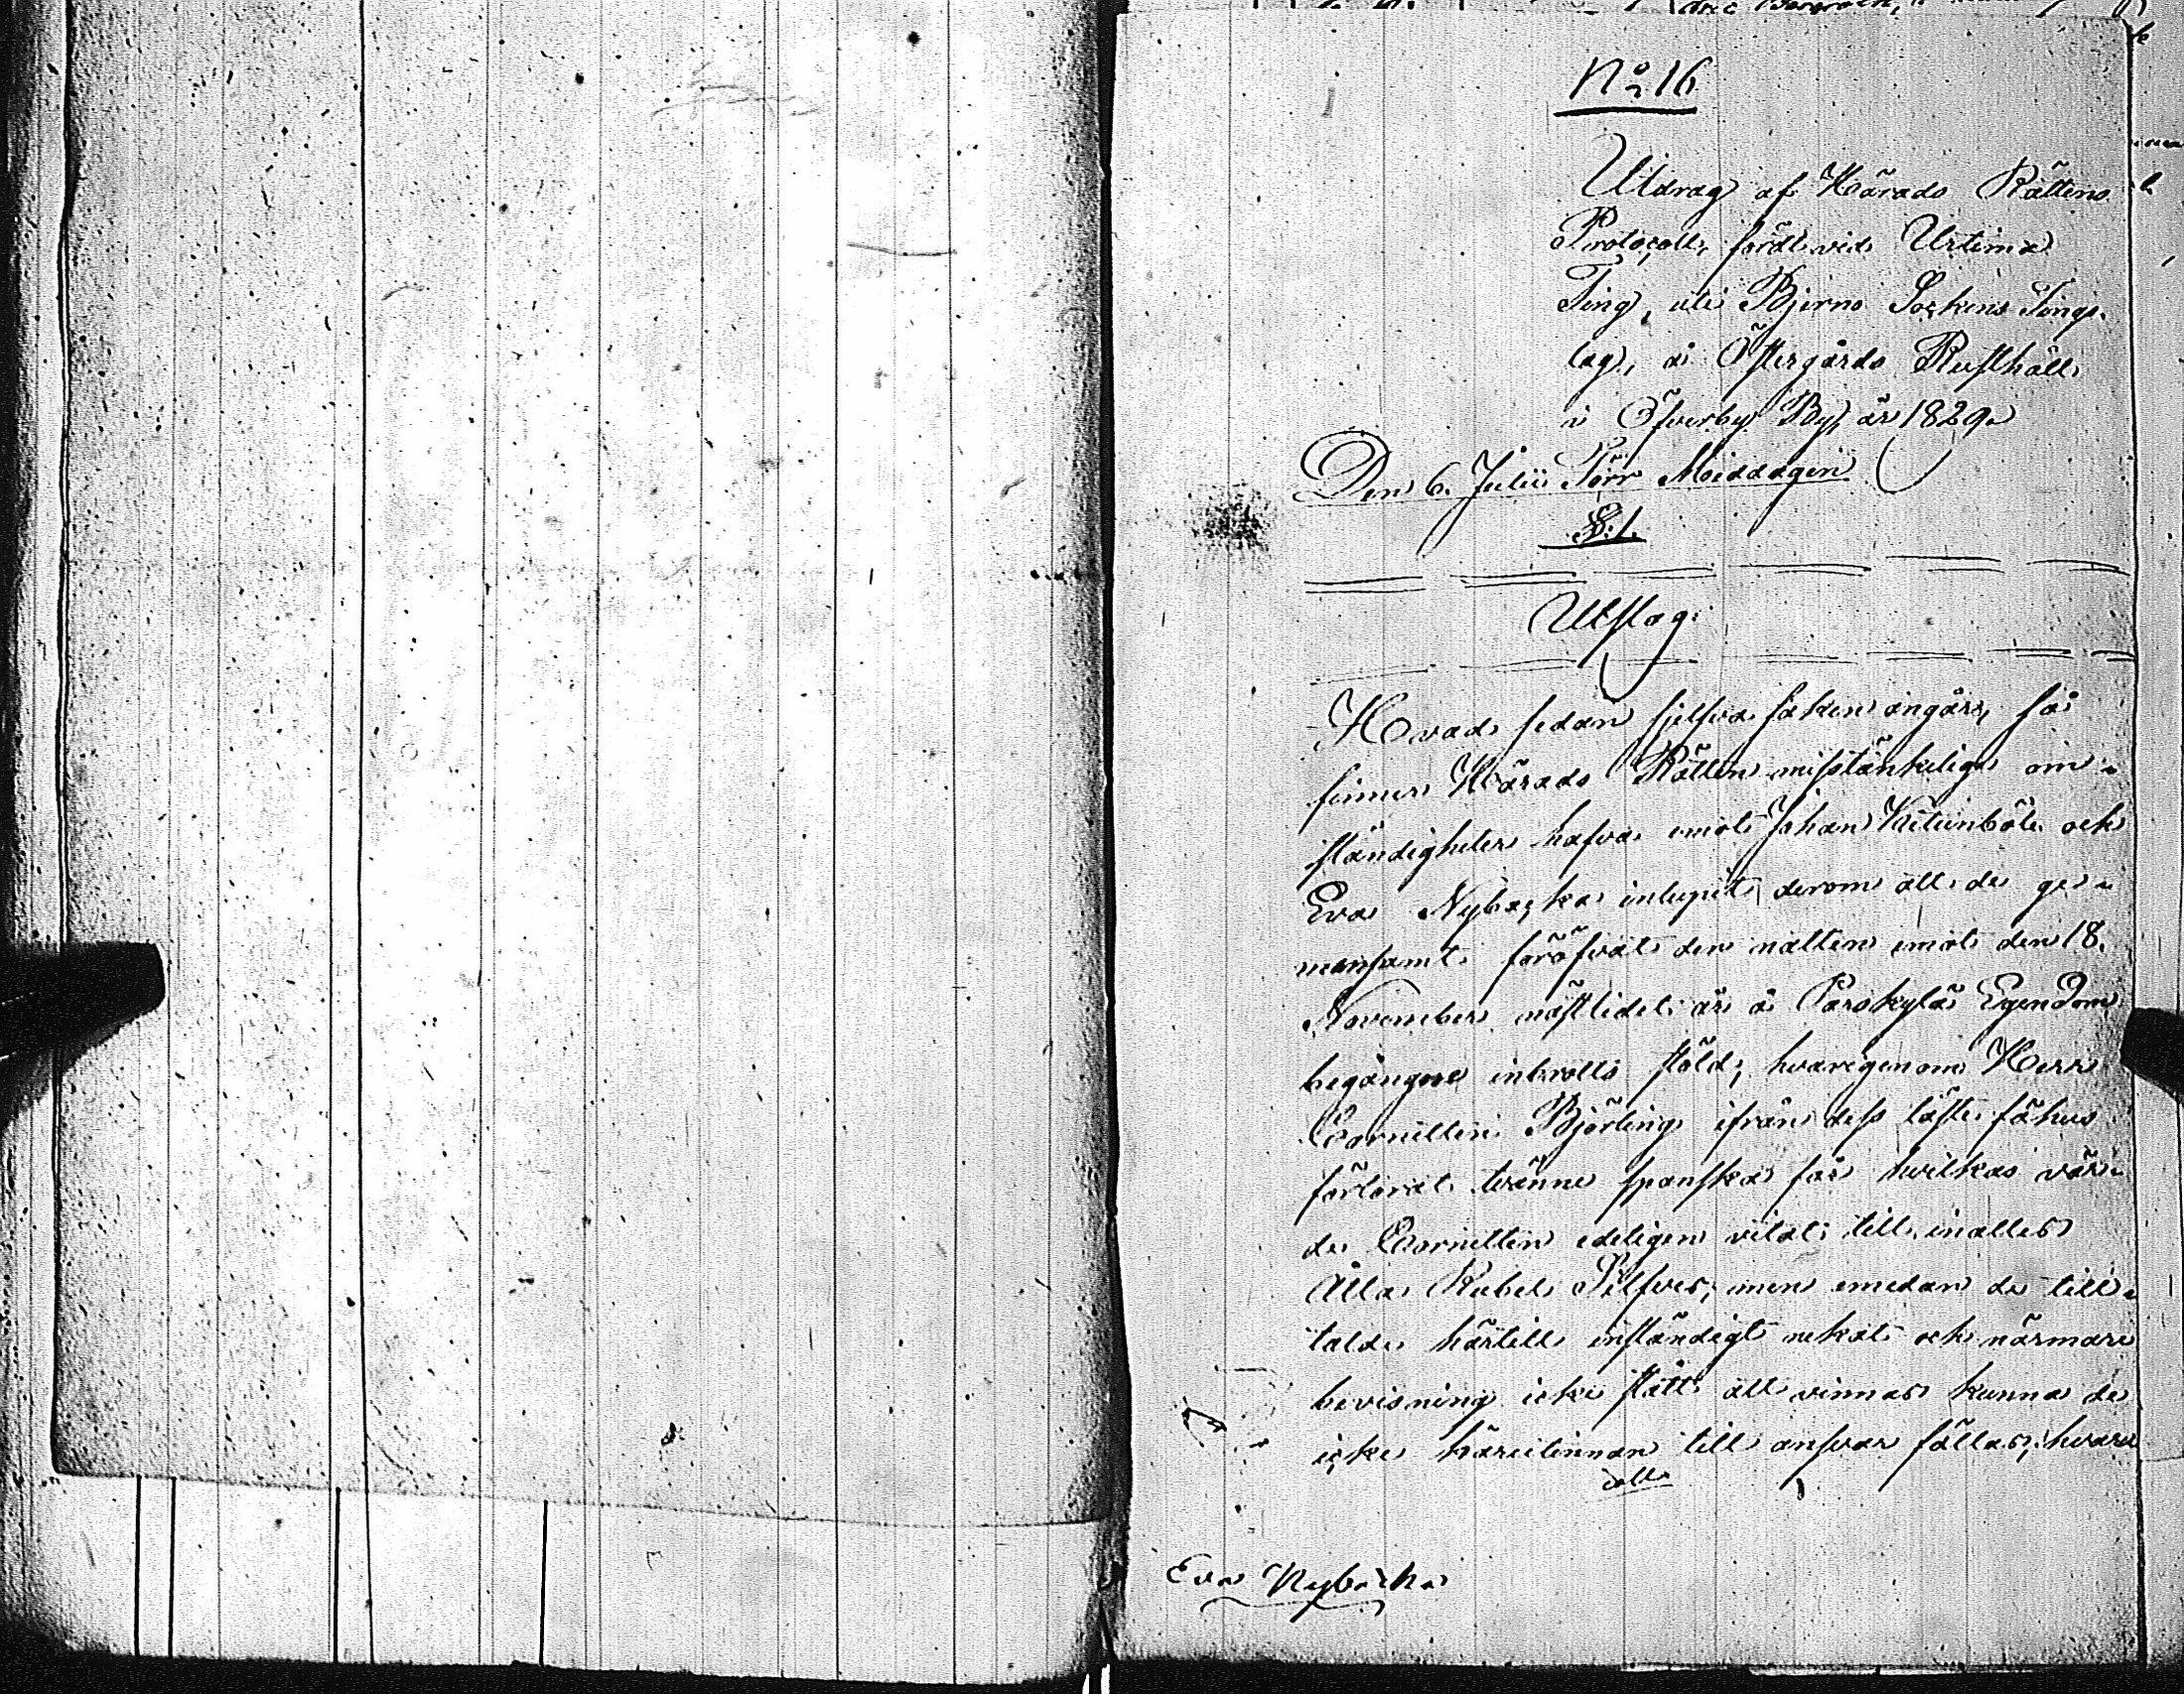 No 16
Utdrag af Härads Rättens
Protocoll, fördt vid Urtima
Ting, uti Bjerno Sockens Tings-
lag, å Östergårds Rusthåll
i Öfverby By, år 1829.
Den 6. Julii Förr Middagen
§. 1.
Utslag.
Hvad sedan sjelfva saken angår, så
finner Härads Rätten misstänkelige om-
ständigheter hafva emot Johan Kituinböle och
Eva Nybacka inlupit derom att de ge-
mensamt föröfvat den natten emot den 18.
November nästlidet år å Parskylä Egendom
begångne inbrotts stöld, hvarigenom Herr
Cornetten Björling ifrån dess låste fähus
förlorat tvänne spanska får hvilkas vär-
de Cornetten edeligen vitat till inalles
Åtta Rubel Silfver; men emedan de till-
talde härtill inständigt nekat och närmare
bevisning icke stått att vinnas kunna de
icke härutinnan till ansvar fällas, hvar-
Eva Nybacka